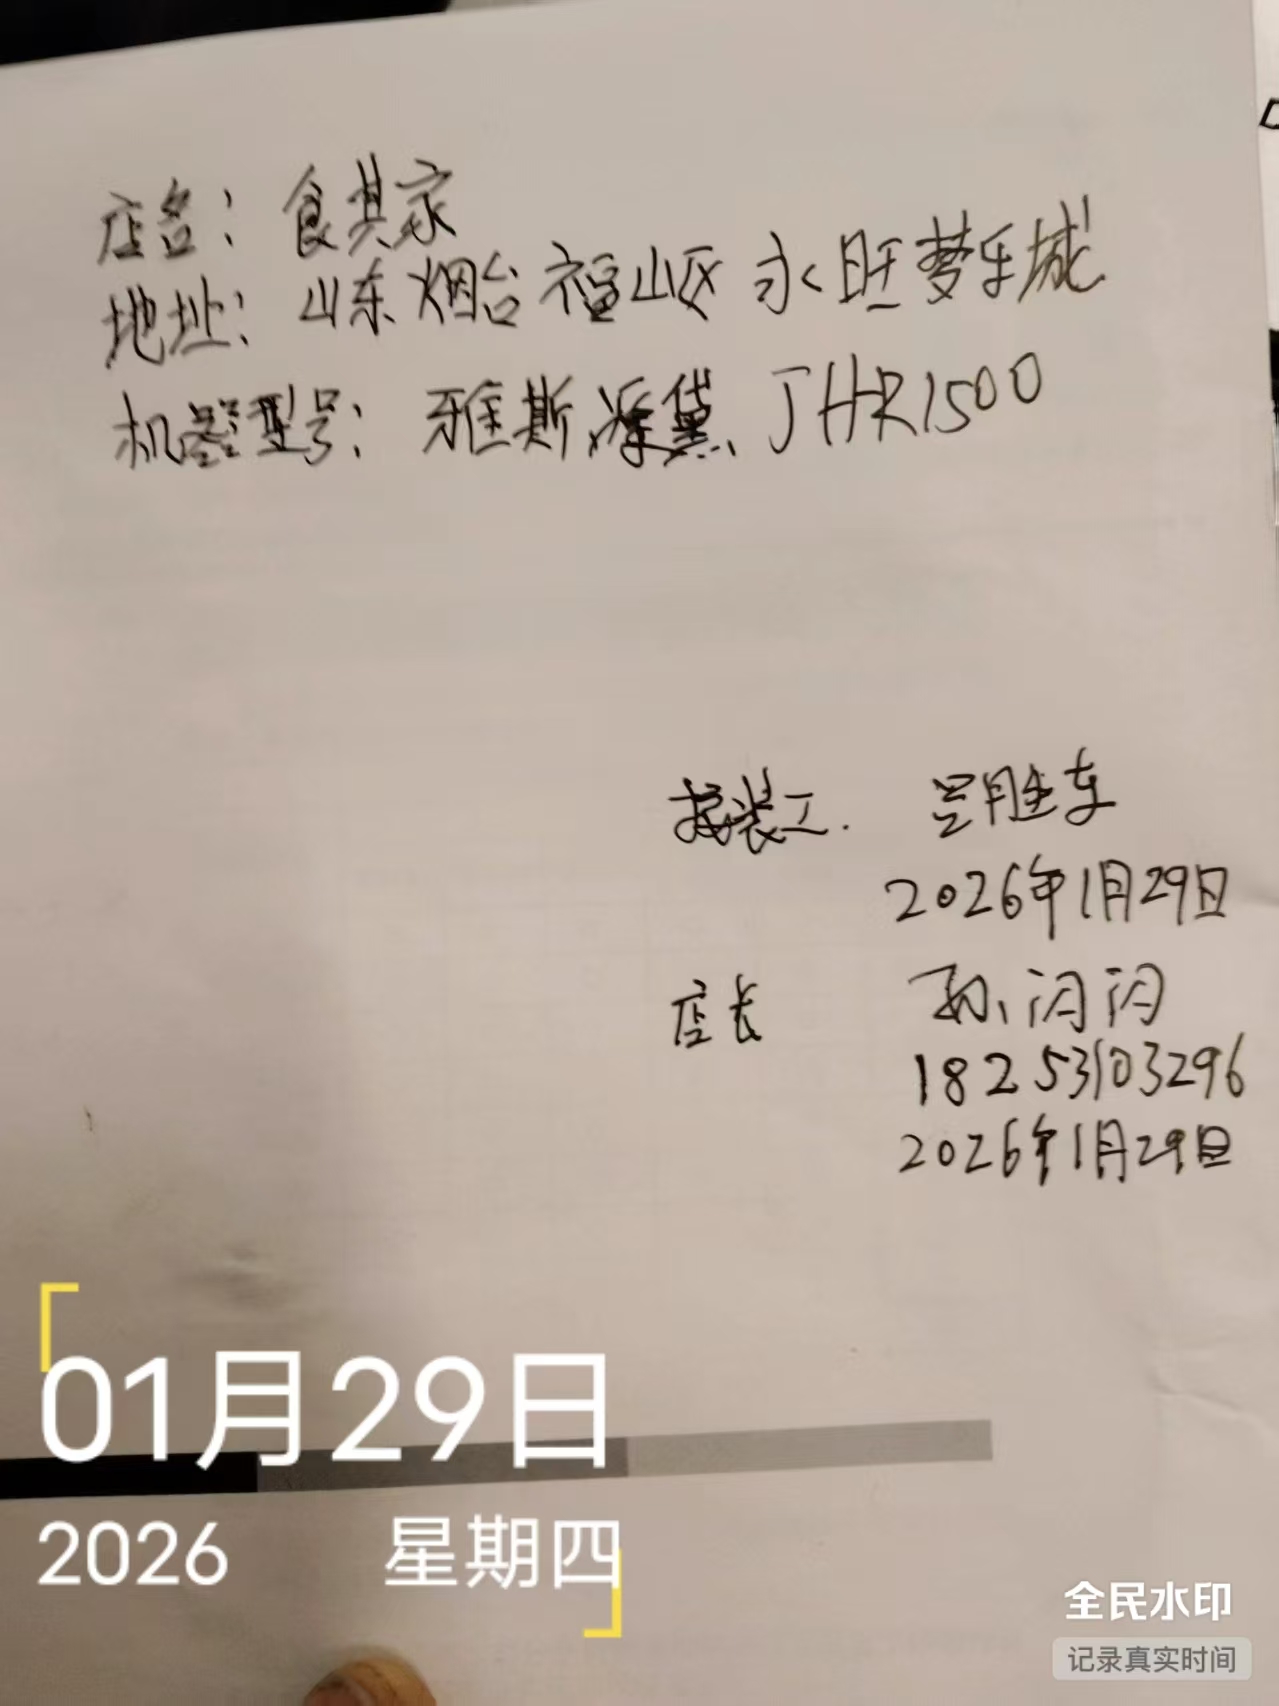 店名：食其家
地址：山东烟台福山区永旺梦乐城
机器型号：雅斯黛 JHR1500
装工. 吕胜东
2026年1月29日
店长 孙闪闪
18253103296
2026年1月29日
01月29日
2026 星期四
全民水印
记录真实时间